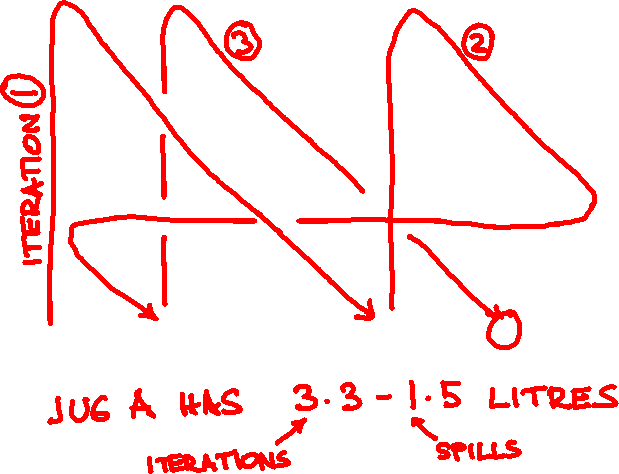 ITERATION ①
③
②
JUG A HAS 3.3 - 1.5 LITRES
ITERATIONS
SPILLS